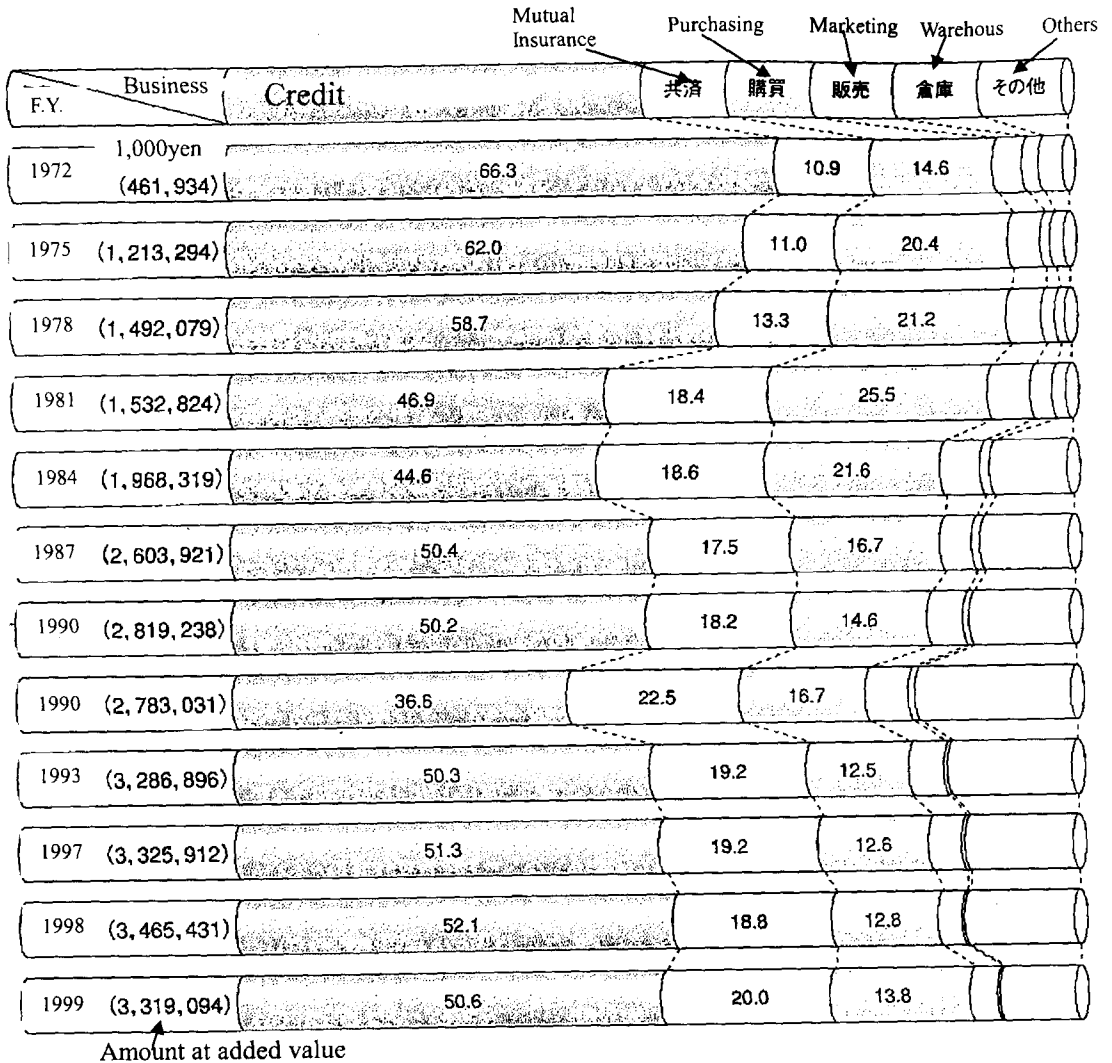 Mutual Insurance Purchasing Marketing Warehous Others
F.Y. Business Credit 共済 購買 販売 倉庫 その他
1972 1,000yen (461,934) 66.3 10.9 14.6
1975 (1,213,294) 62.0 11.0 20.4
1978 (1,492,079) 58.7 13.3 21.2
1981 (1,532,824) 46.9 18.4 25.5
1984 (1,968,319) 44.6 18.6 21.6
1987 (2,603,921) 50.4 17.5 16.7
1990 (2,819,238) 50.2 18.2 14.6
1990 (2,783,031) 36.6 22.5 16.7
1993 (3,286,896) 50.3 19.2 12.5
1997 (3,325,912) 51.3 19.2 12.6
1998 (3,465,431) 52.1 18.8 12.8
1999 (3,319,094) 50.6 20.0 13.8
Amount at added value